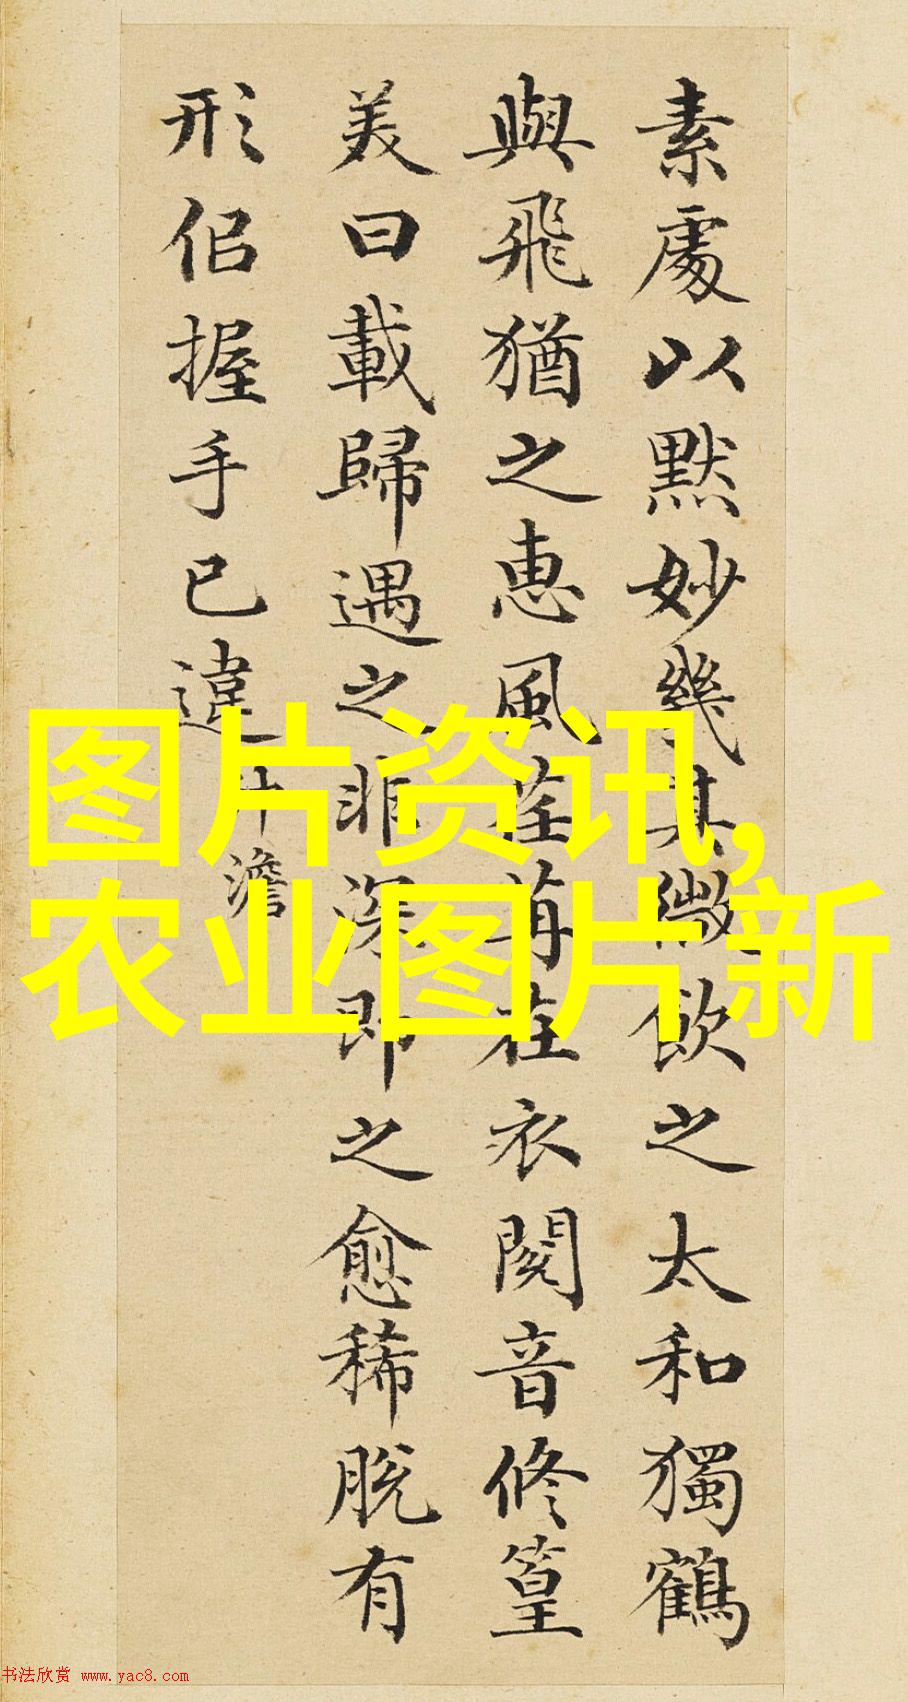 素處以默妙幾其微飲之太和獨鶴
與飛猶之惠風荏苒在衣閱音修篁
美曰載歸遇之非深即之愈稀脫有
形侣握手已違 沖澹
图片资讯,
农业图片新
书法欣赏 www.yac8.com